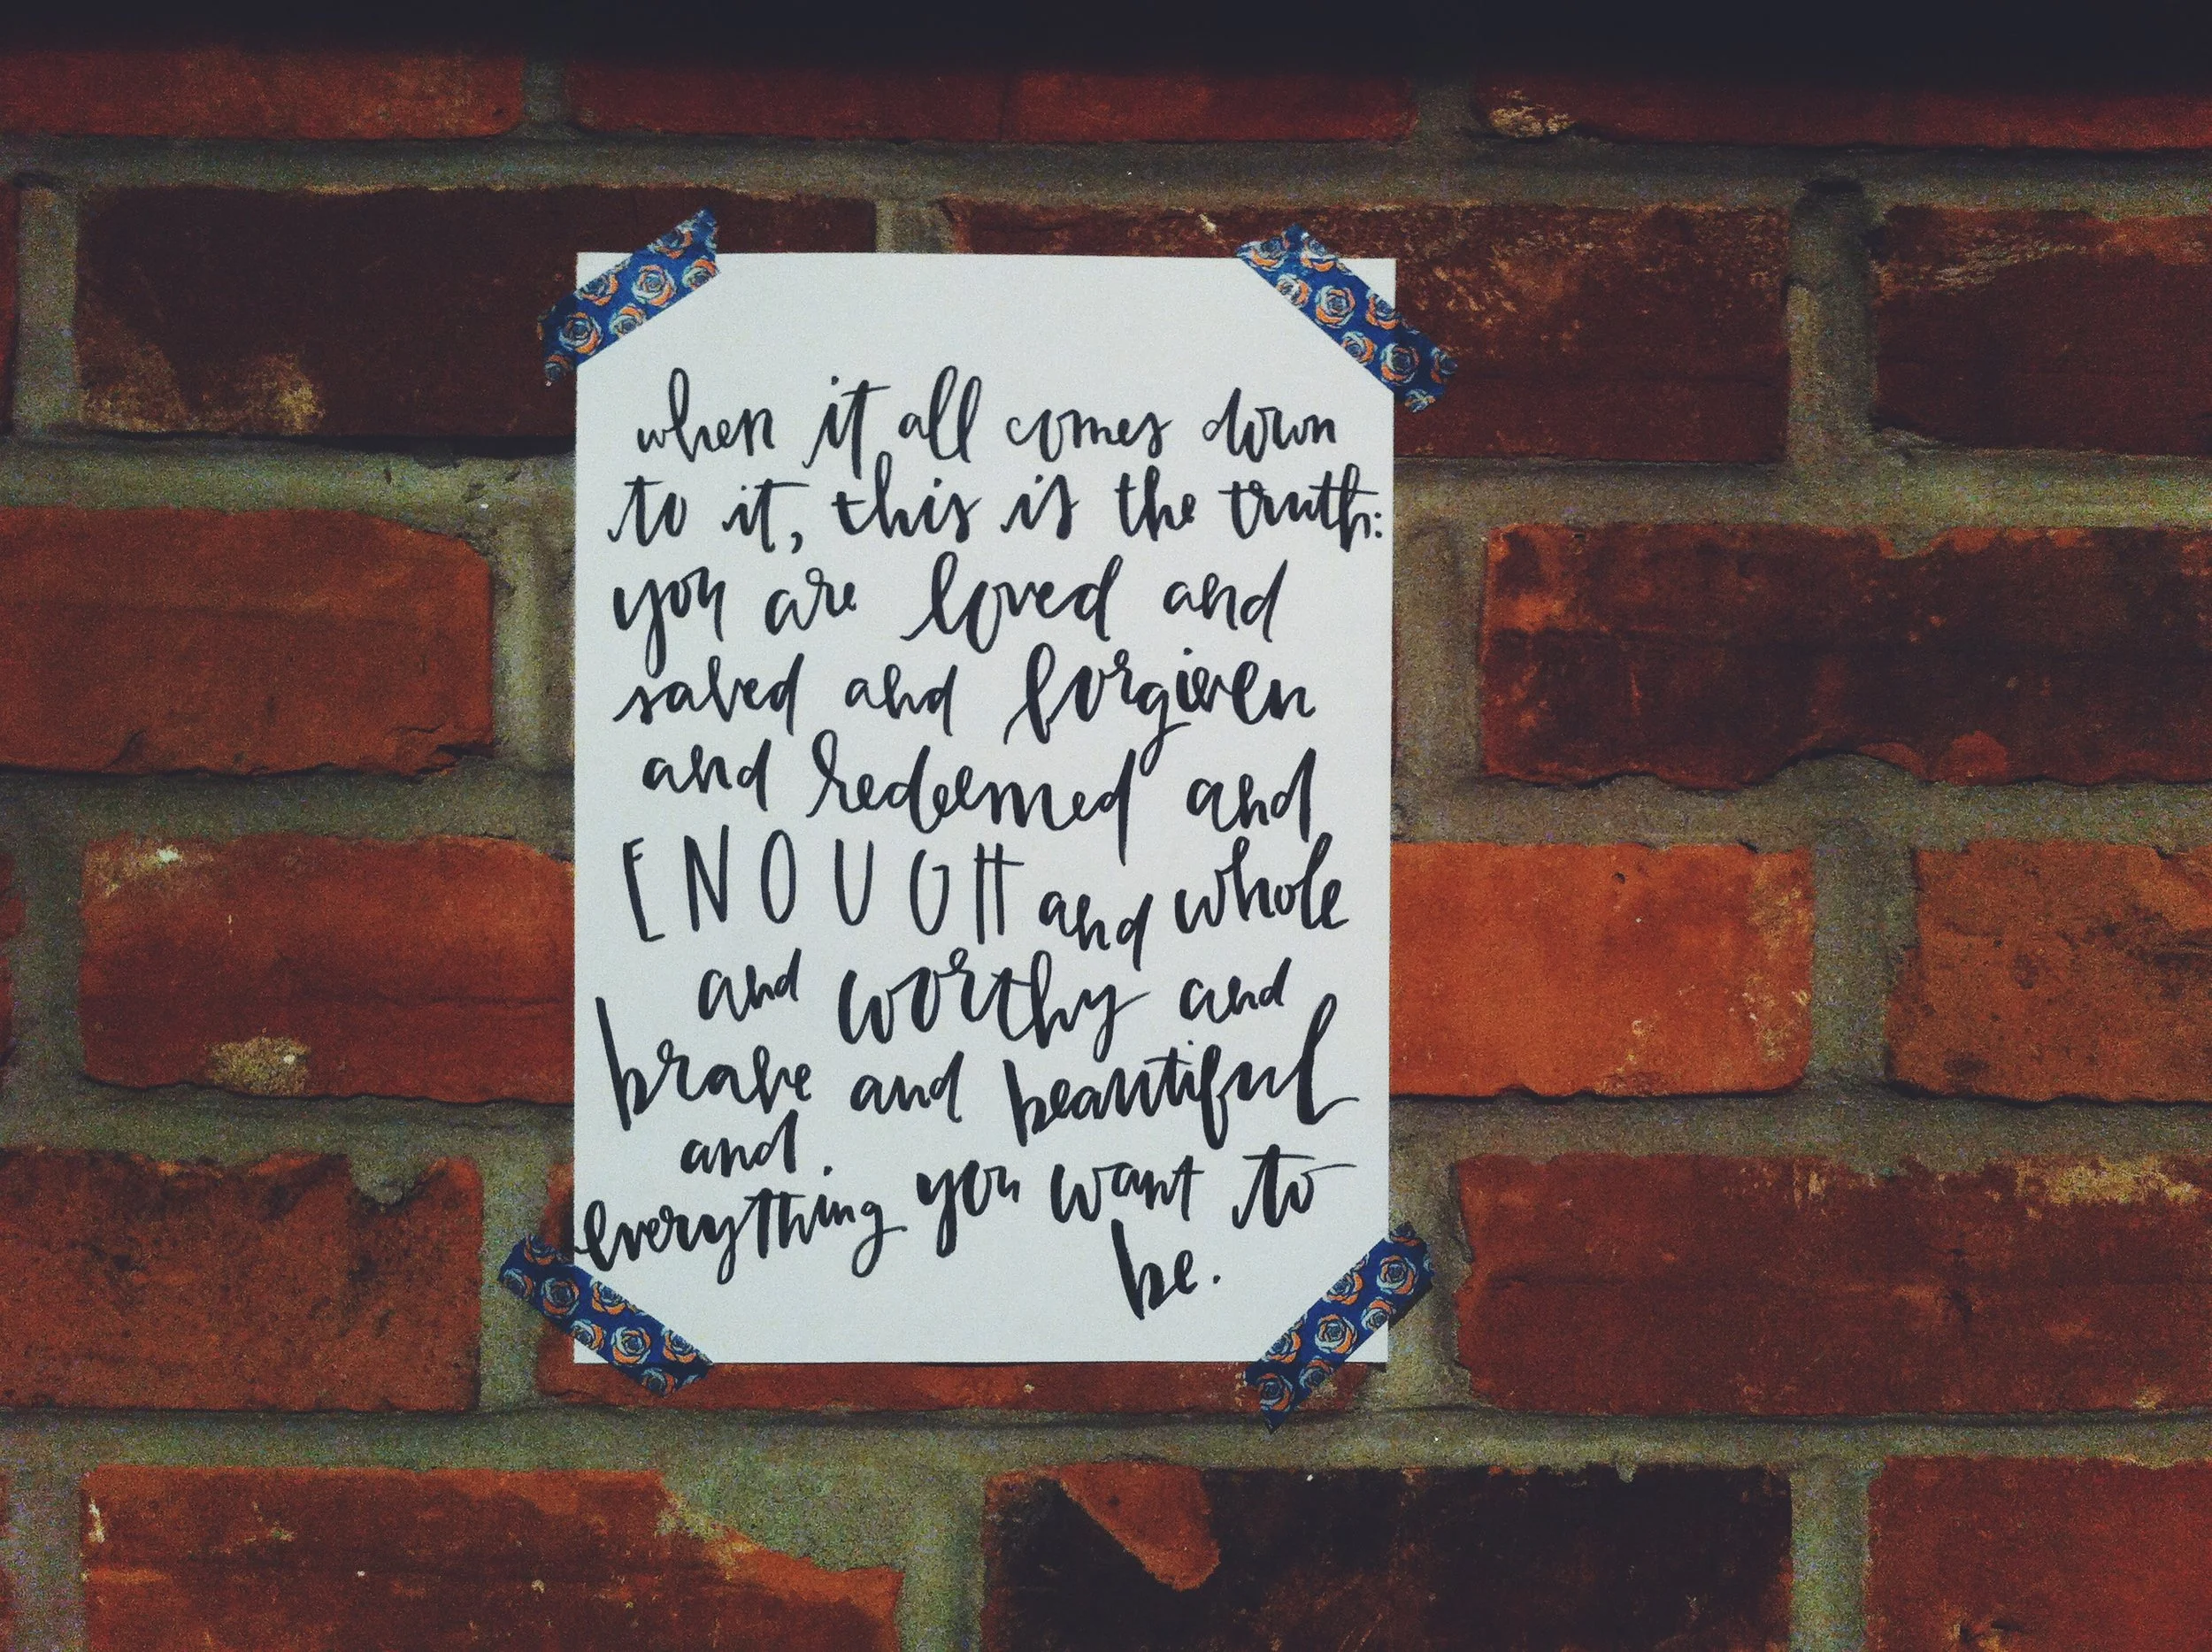 when it all comes down
to it, this is the truth:
you are loved and
saved and forgiven
and redeemed and
ENOUGH and whole
and worthy and
brave and beautiful
and
everything you want to
be.